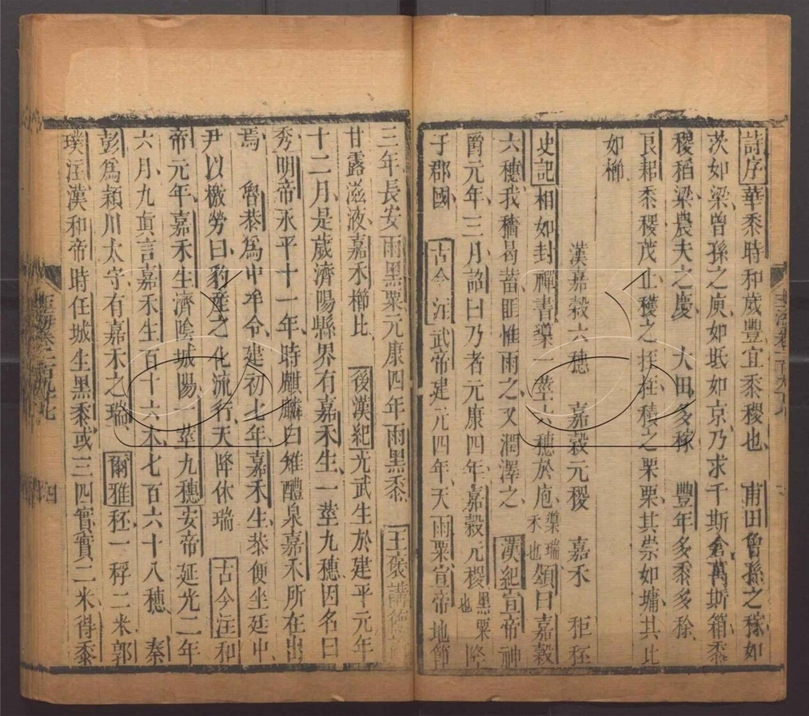 詩序華黍時和歲豐宜黍稷也　甫田曾孫之稼如
茨如梁曾孫之庾如坻如京乃求千斯倉萬斯箱黍
稷稻粱農夫之慶　大田多稼　豐年多黍多稌
良耜黍稷茂止穫之挃挃積之栗栗其崇如墉其比
如櫛
漢嘉穀六穗　嘉穀元稷　嘉禾　秬秠
史記相如封禪書䆃一莖六穗於庖䆃瑞禾也頌曰嘉穀
六穗我穡曷蓄匪惟雨之又潤澤之　漢紀宣帝神
爵元年三月詔曰乃者元康四年嘉穀元稷黑粟也降
于郡國　古今注武帝建元四年天雨粟宣帝地節
三年長安雨黑粟元康四年雨黑黍　王褒講德
甘露滋液嘉禾櫛比　後漢紀光武生於建平元年
十二月是歲濟陽縣界有嘉禾生一莖九穗因名曰
秀明帝永平十一年時麒麟白雉醴泉嘉禾所在出
焉　魯恭爲中牟令建初七年嘉禾生恭便坐廷中
尹以檄勞曰豹產之化流行天降休瑞　古今注和
帝元年嘉禾生濟陰城陽一莖九穗安帝延光二年
六月九真言嘉禾生百十六本七百六十八穗　秦
彭爲潁川太守有嘉禾之瑞　爾雅秠一稃二米郭
璞注漢和帝時任城生黑黍或三四實實二米得黍